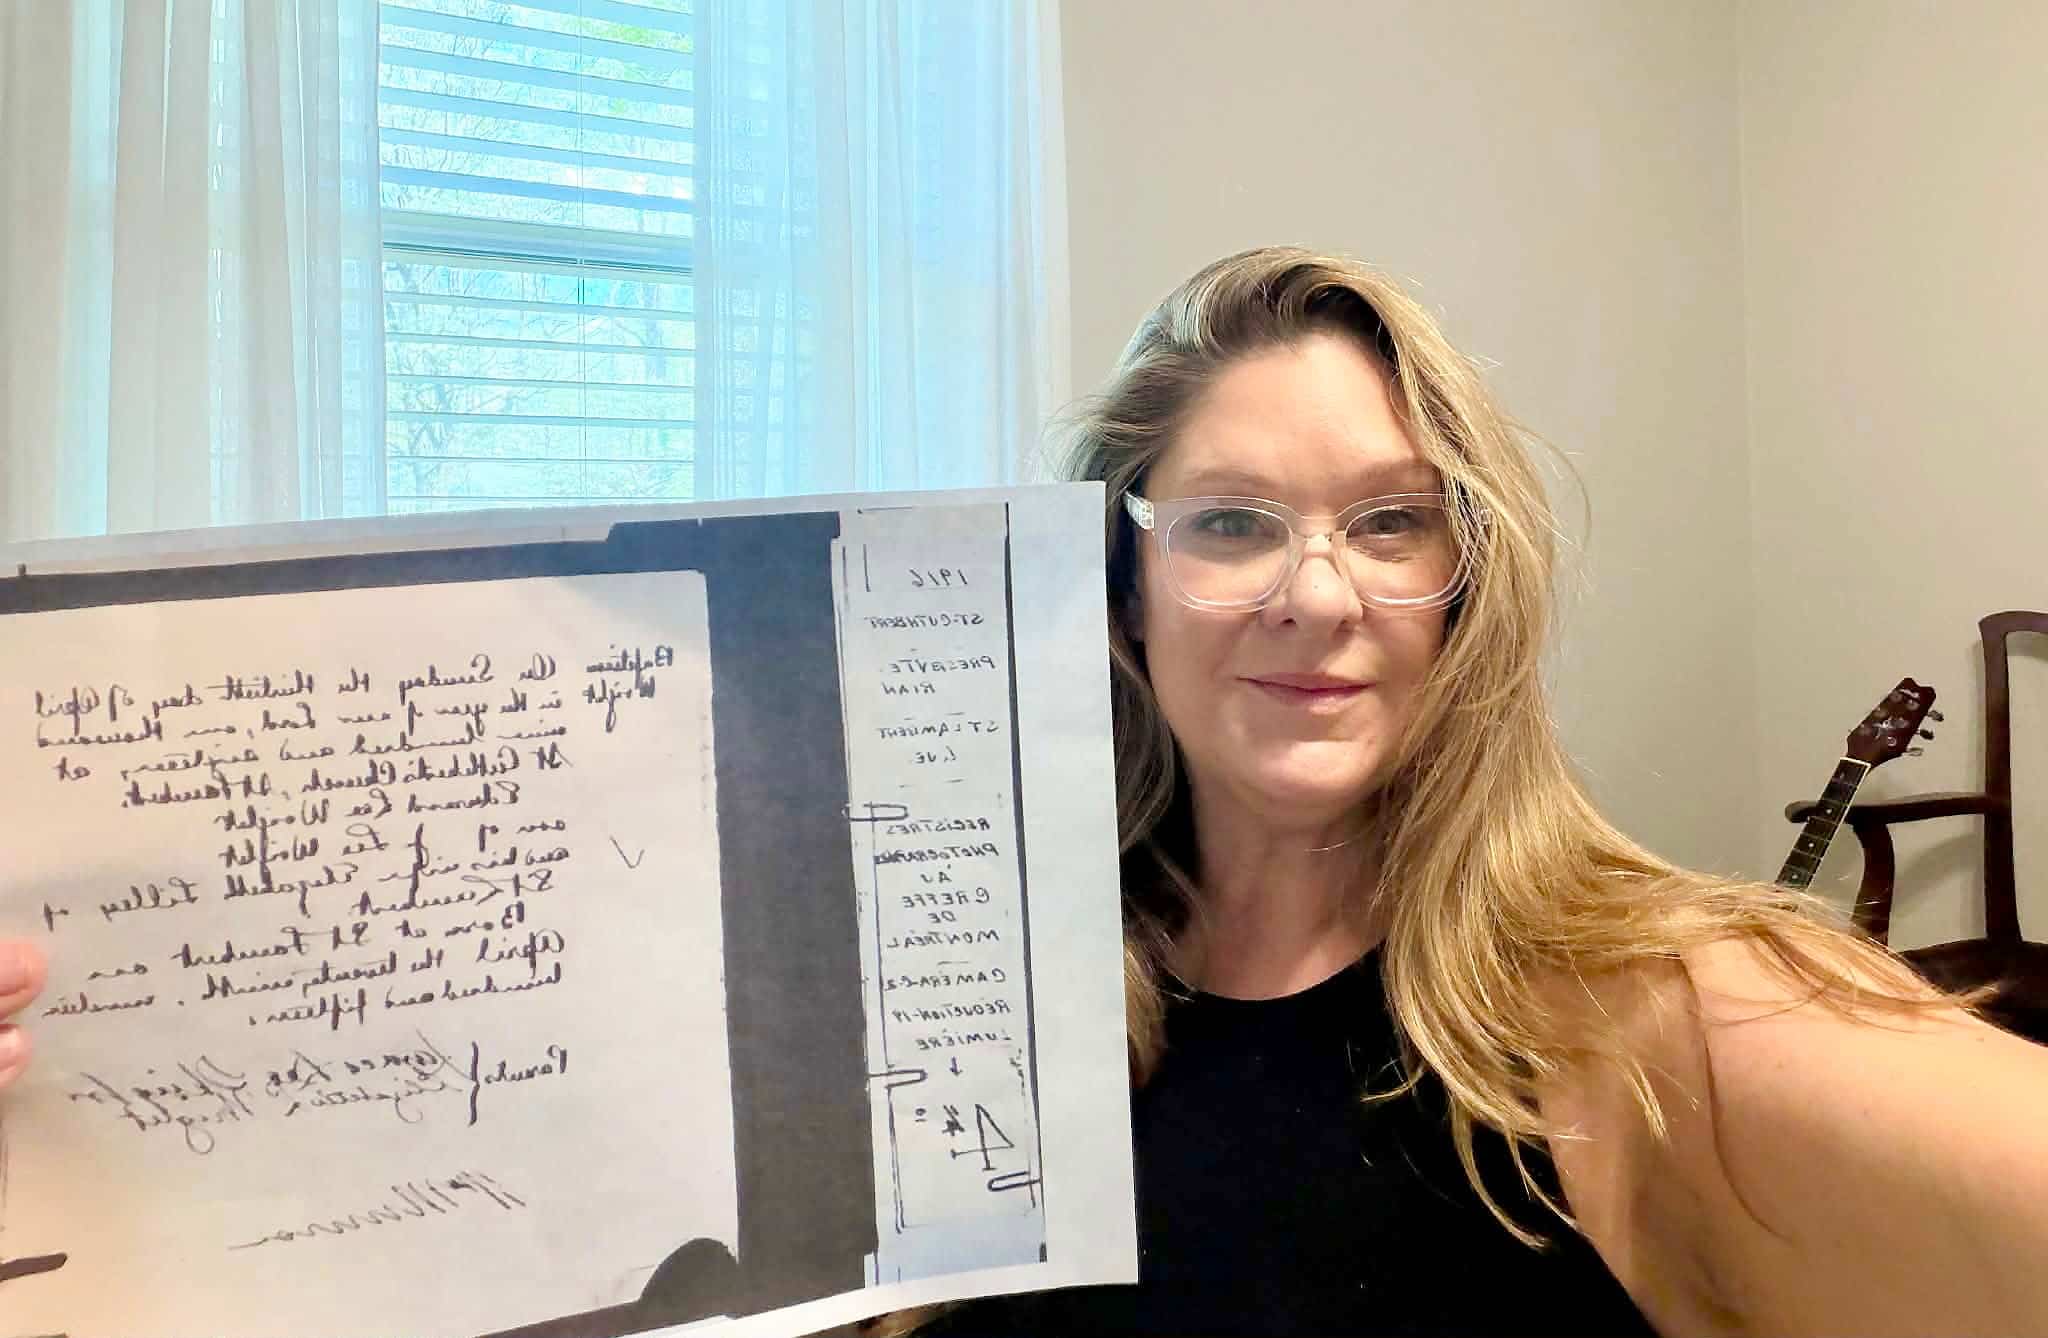 Baptism
Wright
On Sunday the thirtieth day of April
in the year of our Lord, one thousand
nine hundred and sixteen, at
St Cuthbert's Church, St Lambert.
Edward Lee Wright
son of J. Lee Wright
and his wife Elizabeth Lilley of
St Lambert
Born at St Lambert on
April the twenty ninth, nineteen
hundred and fifteen.
Parents {
Wright
Wm Munroe
1916
ST-CUTHBERT
PRESBYTE-
RIAN
ST LAMBERT
REGISTRES
PHOTOGRAPHIÉS
AU
GREFFE
DE
MONTRÉAL
CAMÉRA-C-2
RÉDUCTION-19
LUMIÈRE
4